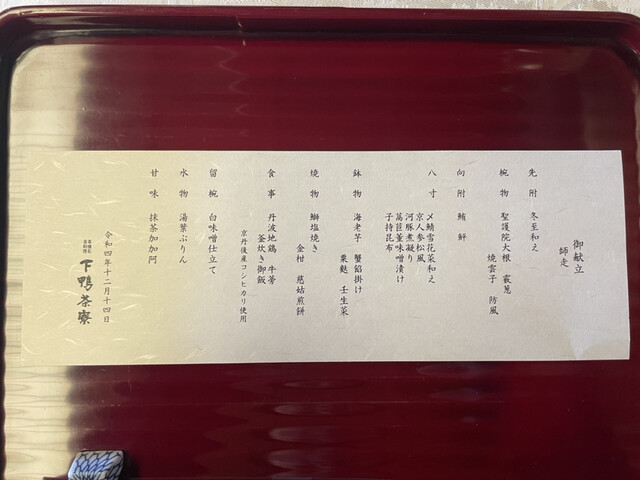 御献立
師走
先附 冬至和え
椀物 聖護院大根 霰葱
焼雲子 防風
向附 鮪 鮃
八寸 〆鯖雪花菜和え
京人参松風
河豚煮凝り
萵苣薹味噌漬け
子持昆布
鉢物 海老芋 蟹餡掛け
粟麩 壬生菜
焼物 鰤塩焼き
金柑 慈姑煎餅
食事 丹波地鶏 牛蒡
釜炊き御飯
京丹後産コシヒカリ使用
留椀 白味噌仕立て
水物 湯葉ぷりん
甘味 抹茶加加阿
令和四年十二月十四日
下鴨茶寮